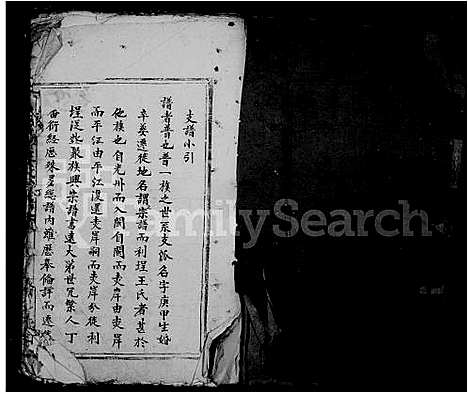 支譜小引
譜者普也普一族之世系支派名字庚甲生婚
卒葬遷徙地名謂崇譜而利埕王氏者甚於
他族也自光州而入閩自閩而夾岸由夾岸
而平江由平江復還夾岸祠而夾岸分徙利
埕從此聚族興崇譜書遠大第世冗繁人丁
蕃衍經歷殊 總譜內雖歷奉脩詳而
FamilySearch